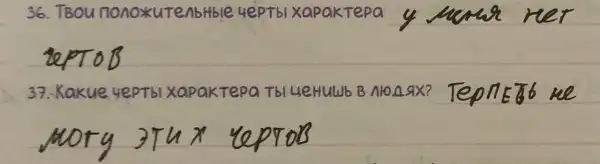 36. Твои положительные черты характера у меня нет
чертов
37. Какие черты характера ты ценишь в людях? Терпеть не
могу этих чертов